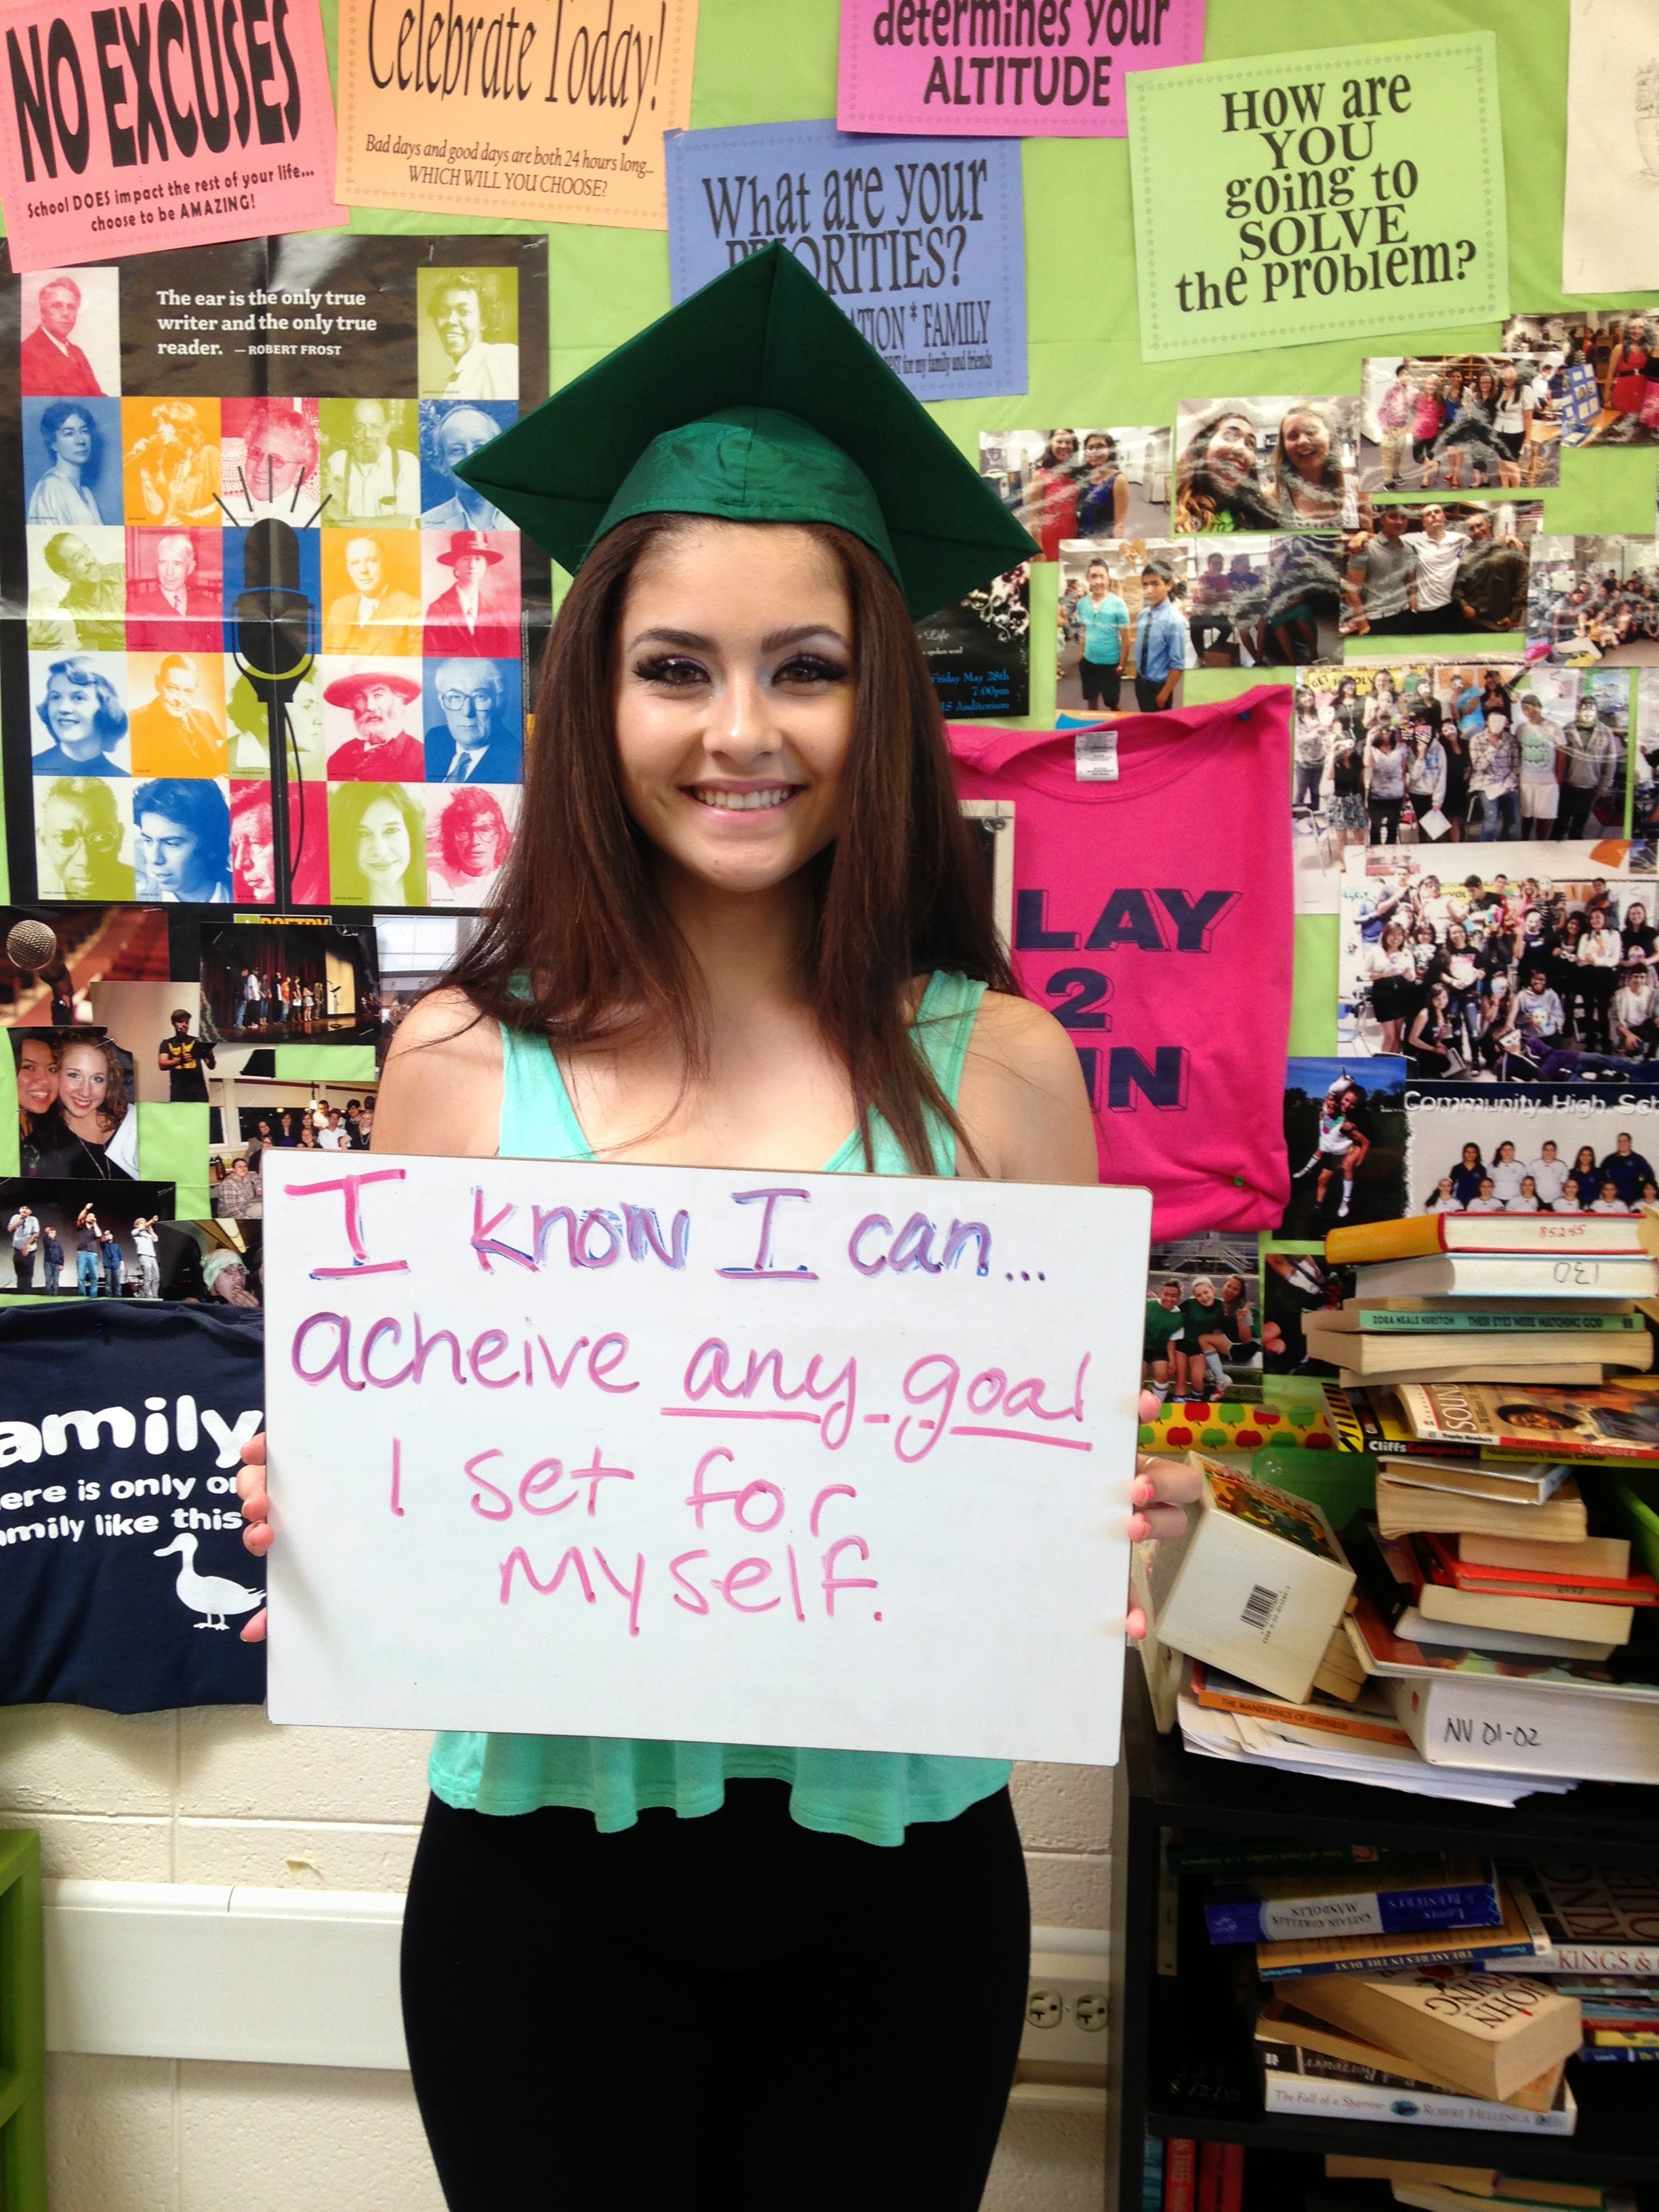 NO EXCUSES
School DOES impact the rest of your life...
choose to be AMAZING!
Celebrate Today!
Bad days and good days are both 24 hours long...
WHICH WILL YOU CHOOSE?
determines your
ALTITUDE
What are your
PRIORITIES?
* FAMILY
for my family and friends
How are
YOU
going to
SOLVE
the problem?
The ear is the only true
writer and the only true
reader. — ROBERT FROST
POETRY
Life
spoken word
Friday May 28th
7:00pm
Auditorium
LAY
2
IN
Community High Sch
I know I can...
acheive any goal
I set for
myself.
amily
ere is only on
amily like this
85245
130
ZORA NEALE HURSTON THEIR EYES WERE WATCHING GOD
SOUN
SOUNDER
Cliffs
THE WANDERINGS OF ODYSSEUS
NV 01-02
CAPTAIN CORELLI'S
MANDOLIN
TREASURES IN THE DUST
KINGS &
JOHN
IRVING
The Fall of a Sparrow ROBERT HELLENGA